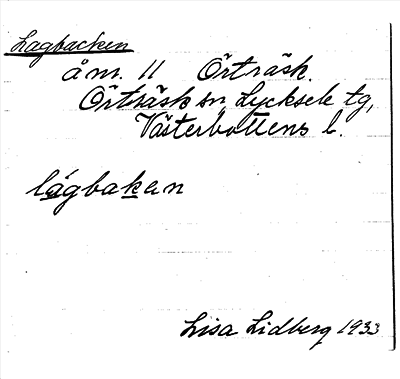 Lagbacken
åm. 11 Örträsk.
Örträsk sn, Lycksele tg,
Västerbottens l.
lágbakan
Lisa Lidberg 1933